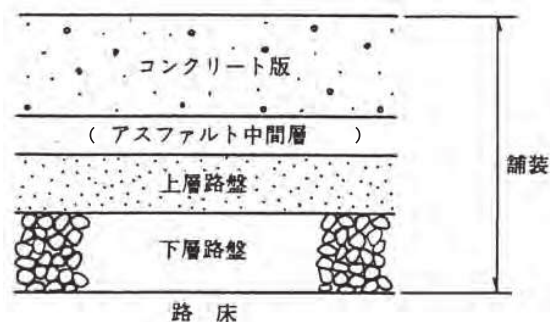 コンクリート版
( アスファルト中間層 )
上層路盤
下層路盤
路床
舗装